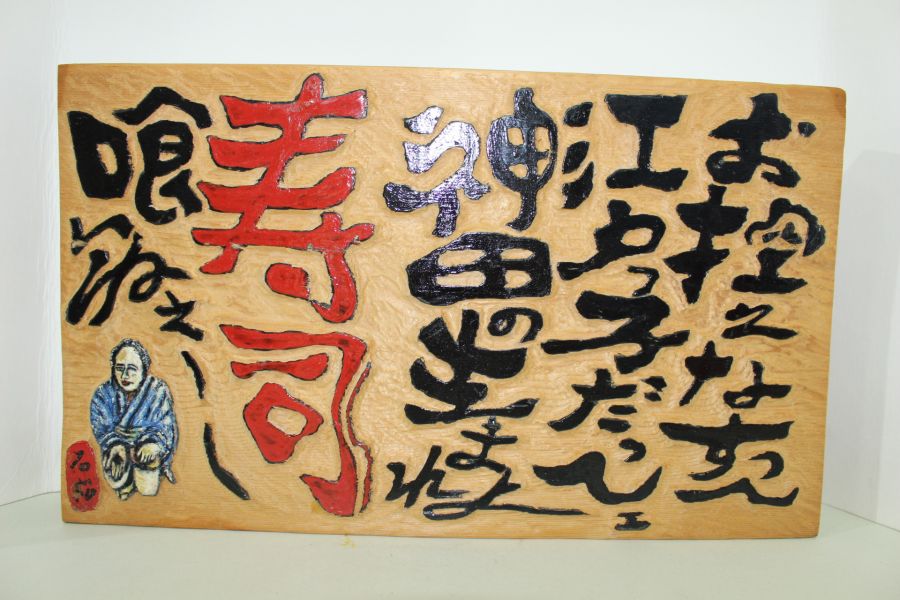 お控えなすって
江戸っ子だってェ
神田の生まれよ
寿司
喰いねえー